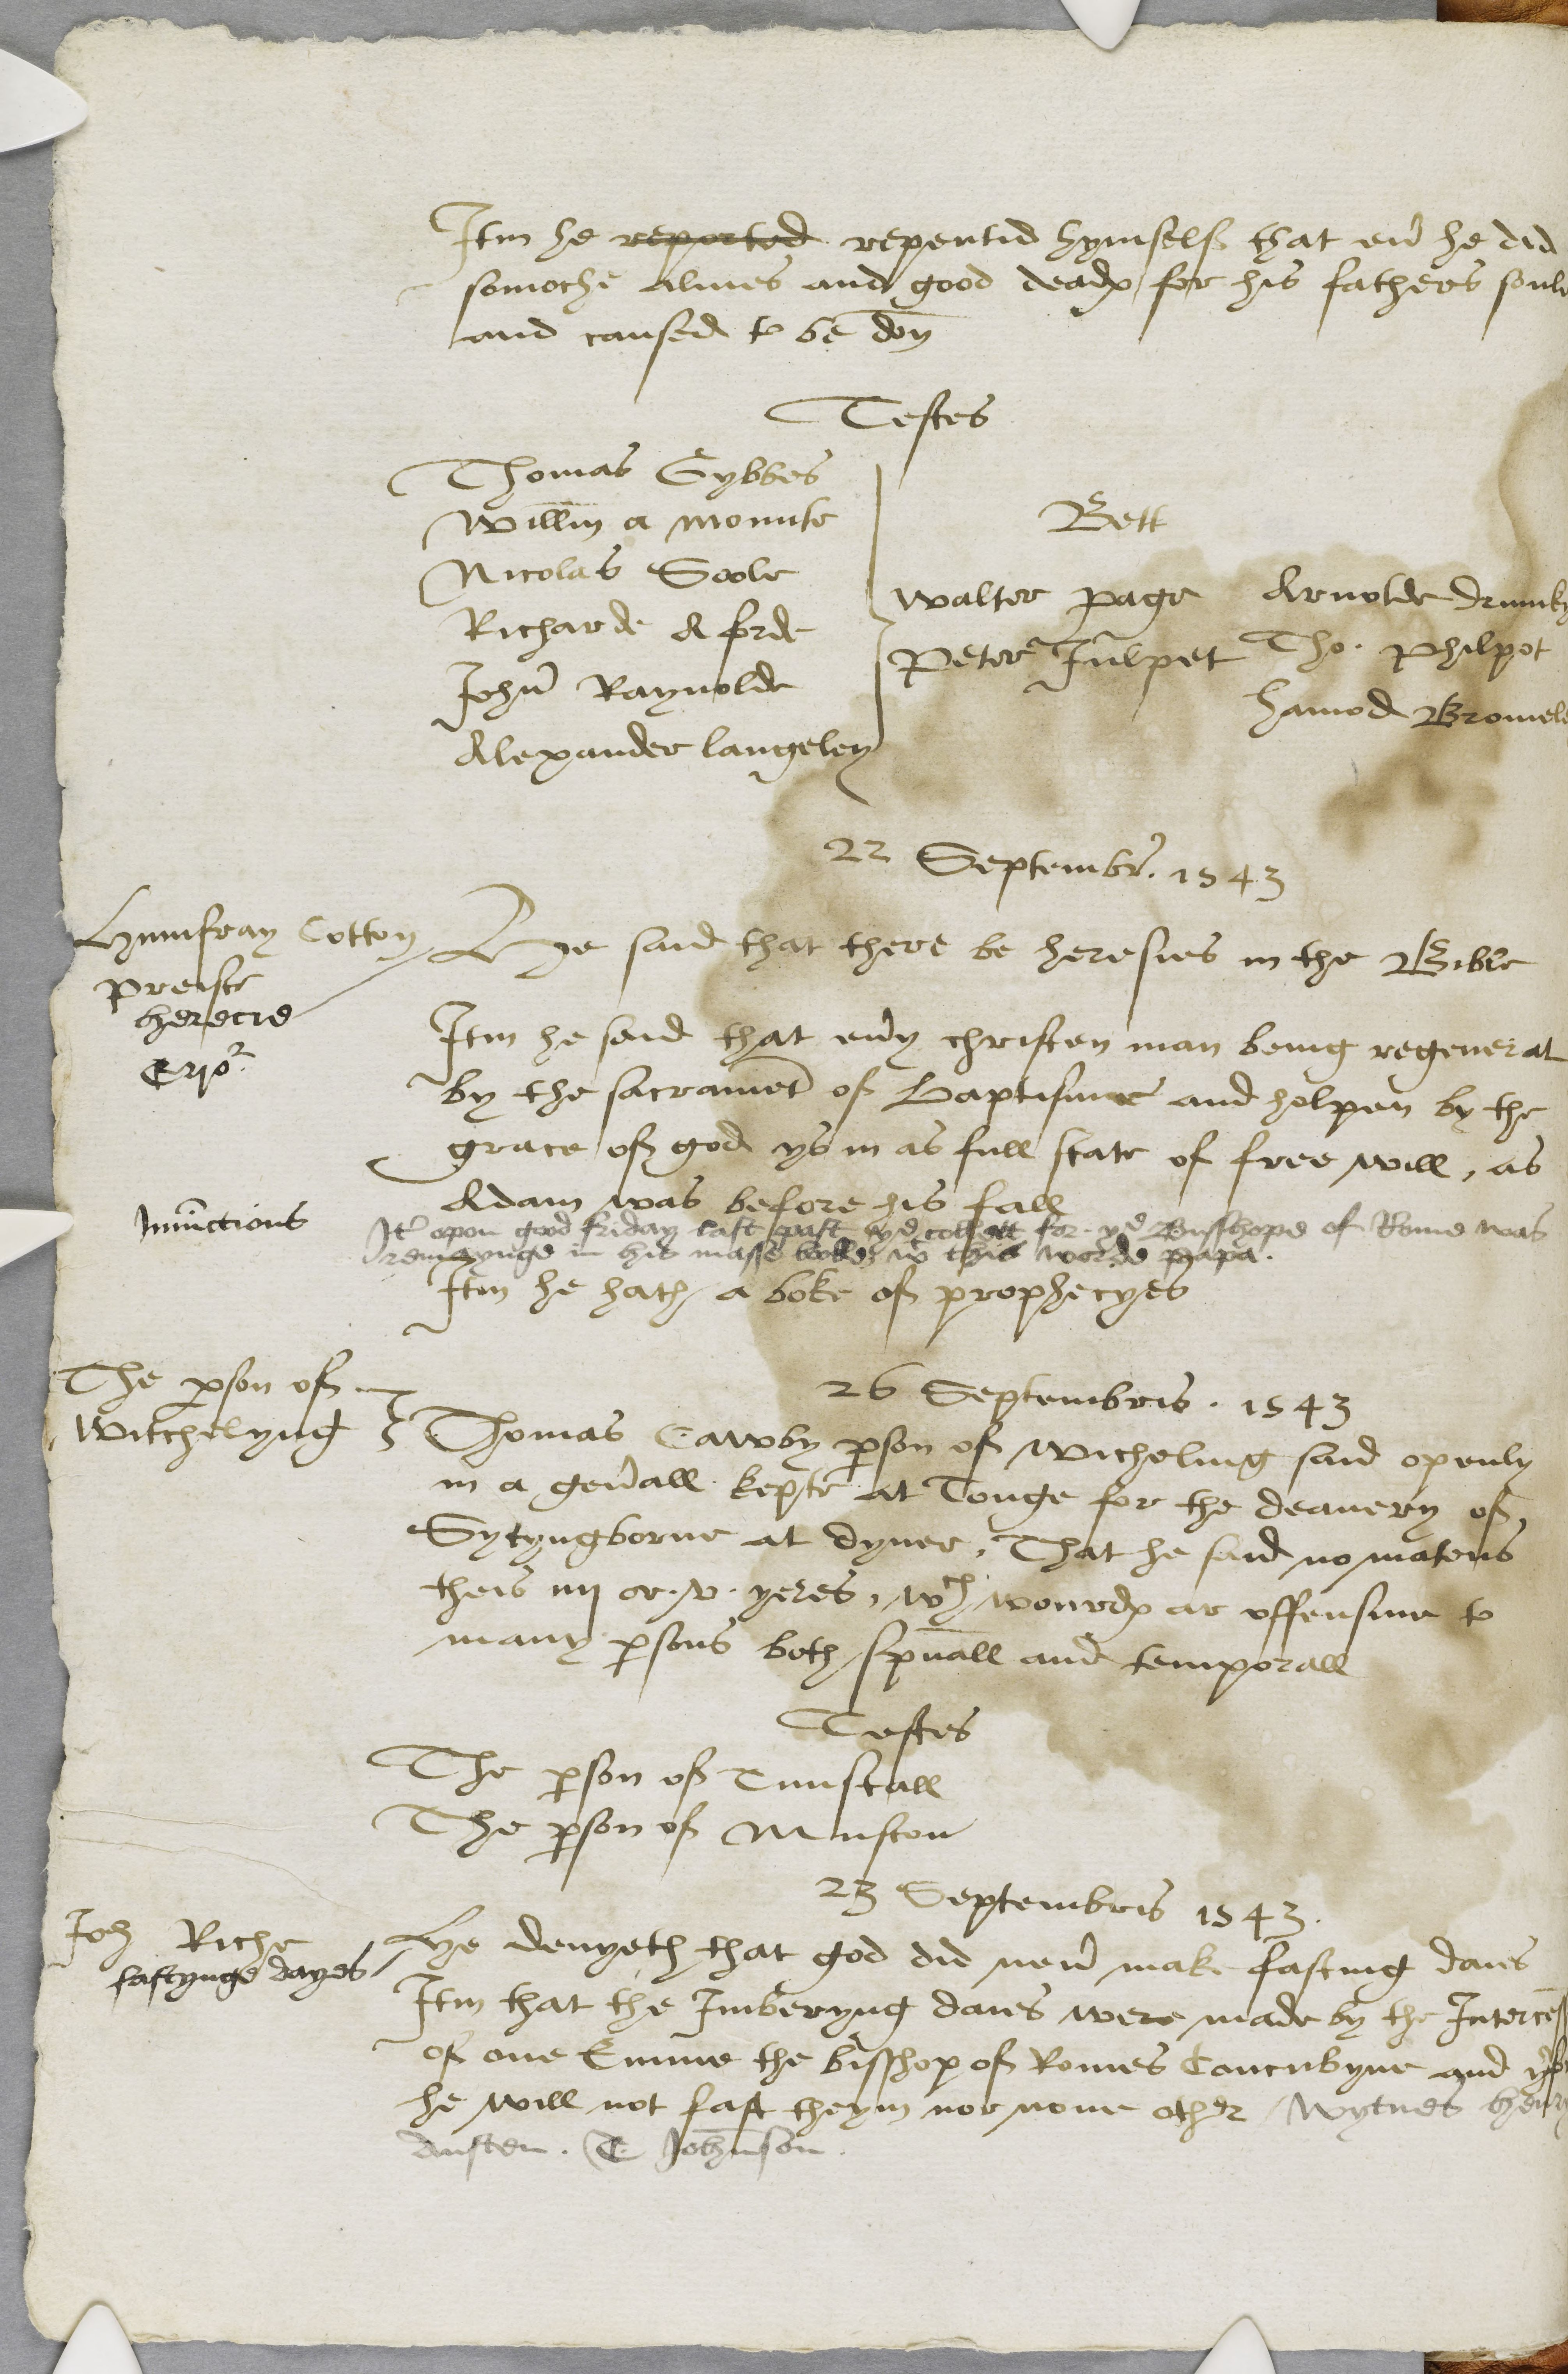 Itm he reported repentid hymself that eu̔ he did
somoche almes and good deadꝭ for his fathers soule
and caused to be don̄
Testes
Thomas Gybbes
Willm̄ a mounte
Nicolas Sole
Richarde A forde
John̄ Raynolde
Alexander langeley
Bett
Walter page
Peter Julpet
Arnolde
Tho. philpot
hamod
22 Septembr̄. 1543
Humfray Cotton
preiste
herecie
Hye said that there be heresies in the Bible
Itm he said that eu̔y christen man being regenerat
by the sacramēt of Baptisme and holpen by the
grace of god ys in as full state of free will, as
Adam was before his fall
Iniūctions
It̄ opon good friday last past yͤ collett for yͤ Busshope of Rome was
remaynge in his masse boke wͭ this worde papa.
Itm he hath a boke of prophecyes
The ꝑson of
Witchelyng
26 Septembris. 1543
Thomas Cawby ꝑson of wicheling said openly
in a geñall kepte at Tonge for the deanery of
Sytyngborne at dyner, That he said no matens
theis iiij or .v. yeres, wᶜʰ wourdꝭ ar offensiue to
many ꝑsons both sp̄uall and temporall
Testes
The ꝑson of Tunstall
The ꝑson of Murston
23 Septembris 1543.
Joh̄ Riche
fastynge dayes
Hye denyeth that god did neu̔ make fasting daies
Itm that the Imberyng daies were made by the
of one Emme the bisshop of Romes Concubyne and
he will not fast theym nor none other Wytnes henry
Austen. T Johnson.